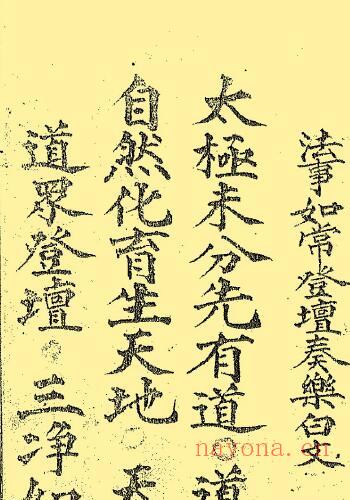 法事如常登壇奏樂白文
太極未分先有道。道
自然化育生天地。天
道眾登壇。三淨
nayona.cn